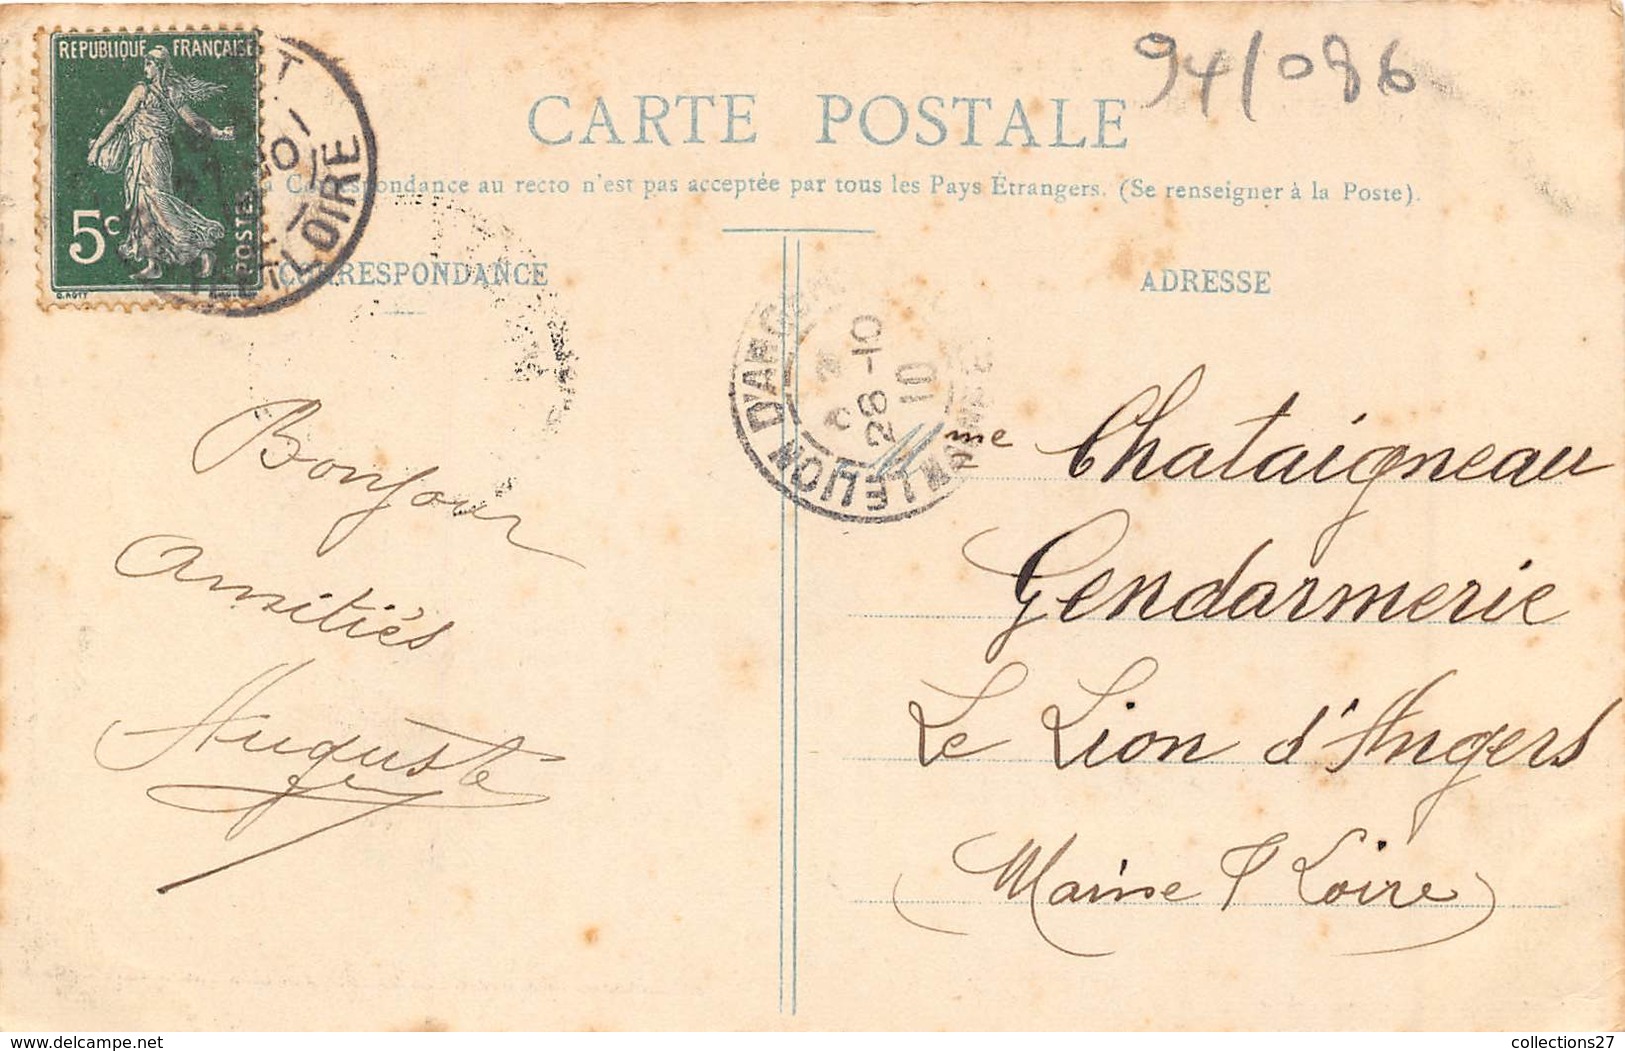 94/086
CARTE POSTALE
La Correspondance au recto n'est pas acceptée par tous les Pays Étrangers. (Se renseigner à la Poste).
REPUBLIQUE FRANÇAISE
5c
POSTES
O. ROTY
ET LOIRE
CORRESPONDANCE
ADRESSE
LE LION D'ANGERS
28-10
10
Bonjour
Amitiés
Auguste
Mme Chataigneau
Gendarmerie
Le Lion d'Angers
(Maine & Loire)
delcampe.net
collections27